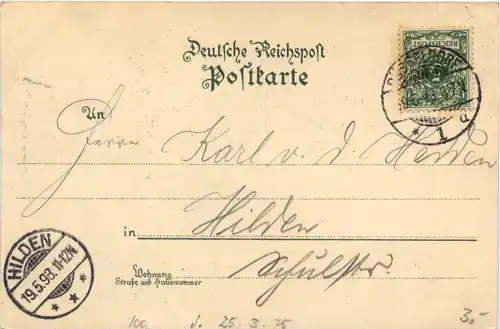 Deutsche Reichspost
Postkarte
REICHSPOST
DÜSSELDORF
* 1 d
An
Herrn Karl v. d. Heiden
in Hilden
Wohnung
Straße und Hausnummer
Schulstr.
HILDEN
19.5.98. 11-12N.
* * *
100 d. 25.3.75 3,-